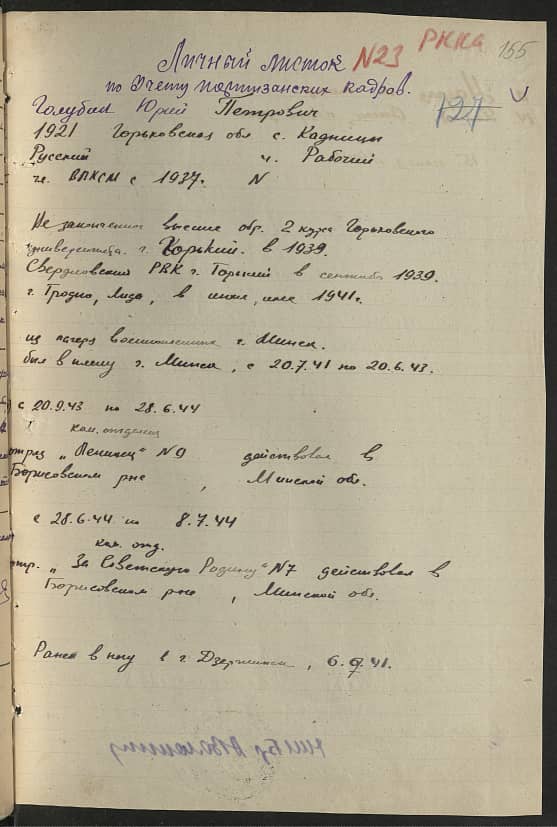 РККА 155
Личный листок N23
по Учету партизанских кадров.
127
Голубин Юрий Петрович
1921 Горьковская обл с. Кадницы
Русский ч. Рабочий
чл. ВЛКСМ с 1937г. N
Не законченное высшее обр. 2 курса Горьковского
университета. г. Горький. в 1939.
Свердловский РВК г. Горький в сентябре 1939.
г. Гродно, Лида, в июне, июле 1941г.
из лагеря военнопленных г. Минск.
был в плену г. Минск, с 20.7.41 по 20.6.43.
с 20.9.43 по 28.6.44
ком. отделения
отряд „Ленинец" N9 действовал в
Борисовском р-не, Минской обл.
с 28.6.44 по 8.7.44
ком. отд.
отр. „За Советскую Родину" N7 действовал в
Борисовском р-не, Минской обл.
Ранен в ногу в г. Дзержинск, 6.9.41.